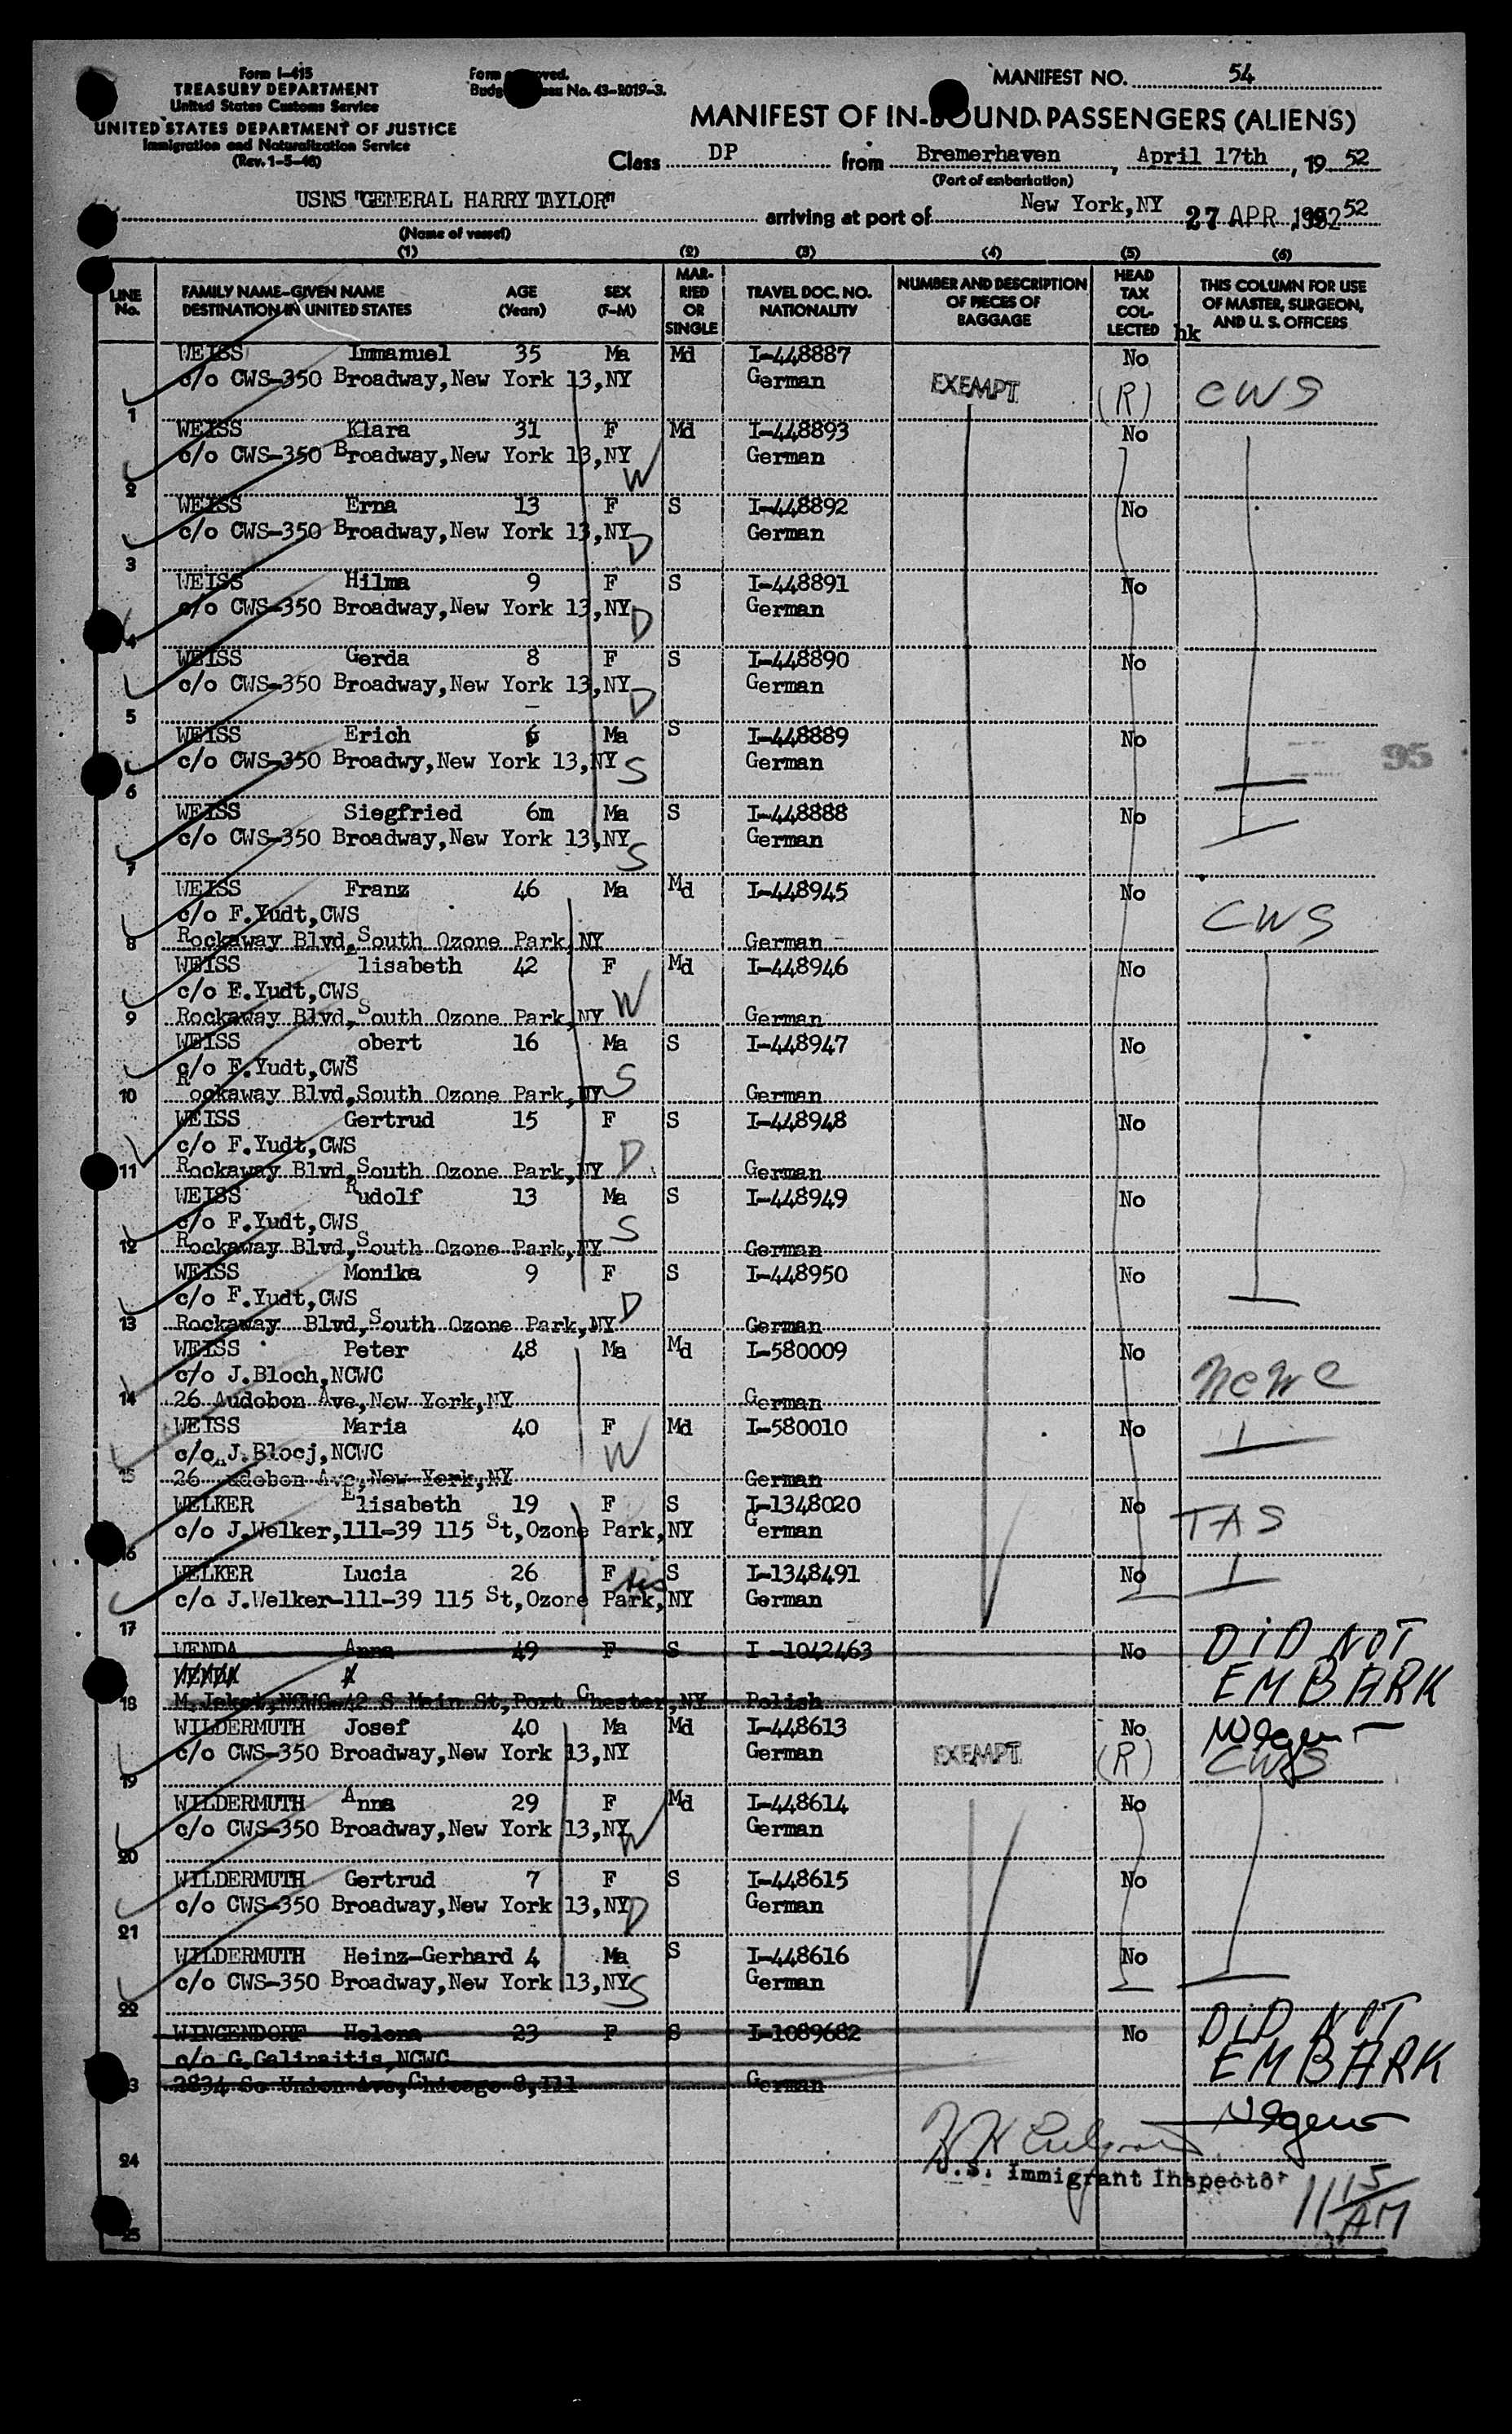 Form I-415
TREASURY DEPARTMENT
United States Customs Service
UNITED STATES DEPARTMENT OF JUSTICE
Immigration and Naturalization Service
(Rev. 1-5-46)
Form
Budg No. 43-R019-3.
MANIFEST NO. 54
MANIFEST OF IN-BOUND PASSENGERS (ALIENS)
Class DP from Bremerhaven, April 17th, 19 52
(Port of embarkation)
USNS "GENERAL HARRY TAYLOR" arriving at port of New York,NY 27 APR 1952 52
(Name of vessel)
(1) (2) (3) (4) (5) (6)
LINE No. FAMILY NAME-GIVEN NAME DESTINATION IN UNITED STATES AGE (Years) SEX (F-M) MARRIED OR SINGLE TRAVEL DOC. NO. NATIONALITY NUMBER AND DESCRIPTION OF PIECES OF BAGGAGE HEAD TAX COLLECTED THIS COLUMN FOR USE OF MASTER, SURGEON, AND U. S. OFFICERS
hk
WEISS Immanuel 35 Ma Md I-448887 No
c/o CWS-350 Broadway,New York 13,NY German EXEMPT (R) CWS
1
WEISS Klara 31 F Md I-448893 No
c/o CWS-350 Broadway,New York 13,NY German
2 W
WEISS Erna 13 F S I-448892 No
c/o CWS-350 Broadway,New York 13,NY D German
3
WEISS Hilma 9 F S I-448891 No
c/o CWS-350 Broadway,New York 13,NY D German
4
WEISS Gerda 8 F S I-448890 No
c/o CWS-350 Broadway,New York 13,NY D German
5
WEISS Erich 6 Ma S I-448889 No
c/o CWS-350 Broadwy,New York 13,NY S German
95
6
WEISS Siegfried 6m Ma S I-448888 No
c/o CWS-350 Broadway,New York 13,NY S German
7
WEISS Franz 46 Ma Md I-448945 No
c/o F.Yudt,CWS CWS
8 Rockaway Blvd,South Ozone Park,NY German
WEISS lisabeth 42 F Md I-448946 No
c/o E.Yudt,CWS W
9 Rockaway Blvd,South Ozone Park,NY German
WEISS obert 16 Ma S I-448947 No
c/o F.Yudt,CWS S
10 Rockaway Blvd,South Ozone Park,NY German
WEISS Gertrud 15 F S I-448948 No
c/o F.Yudt,CWS D
11 Rockaway Blvd,South Ozone Park,NY German
WEISS Rudolf 13 Ma S I-448949 No
c/o F.Yudt,CWS S
12 Rockaway Blvd,South Ozone Park,NY German
WEISS Monika 9 F S I-448950 No
c/o F.Yudt,CWS D
13 Rockaway Blvd,South Ozone Park,NY German
WEISS Peter 48 Ma Md I-580009 No
c/o J.Bloch,NCWC NCWC
14 26 Audobon Ave,New York,NY German
WEISS Maria 40 F Md I-580010 No
c/o J.Blocj,NCWC W
15 26 Audobon Ave,New York,NY German
WELKER Elisabeth 19 F S I-1348020 No
c/o J.Welker,111-39 115 St,Ozone Park,NY German TAS
16
WELKER Lucia 26 F S I-1348491 No
c/o J.Welker-111-39 115 St,Ozone Park,NY German
17
WENDA Anna 49 F S I-1042463 No DID NOT
EMBARK
18 M.Jeket,NCWC-42 S Main St,Port Chester,NY Polish
WILDERMUTH Josef 40 Ma Md I-448613 No
c/o CWS-350 Broadway,New York 13,NY German EXEMPT (R) CWS
19
WILDERMUTH Anna 29 F Md I-448614 No
c/o CWS-350 Broadway,New York 13,NY W German
20
WILDERMUTH Gertrud 7 F S I-448615 No
c/o CWS-350 Broadway,New York 13,NY D German
21
WILDERMUTH Heinz-Gerhard 4 Ma S I-448616 No
c/o CWS-350 Broadway,New York 13,NY S German
22
WINGENDORF Helena 23 F S I-1089682 No DID NOT
c/o G.Galinaitis,NCWC EMBARK
3 2834 So Union Ave,Chicago 8,Ill German
24
U.S. Immigrant Inspector
11 15 AM
25